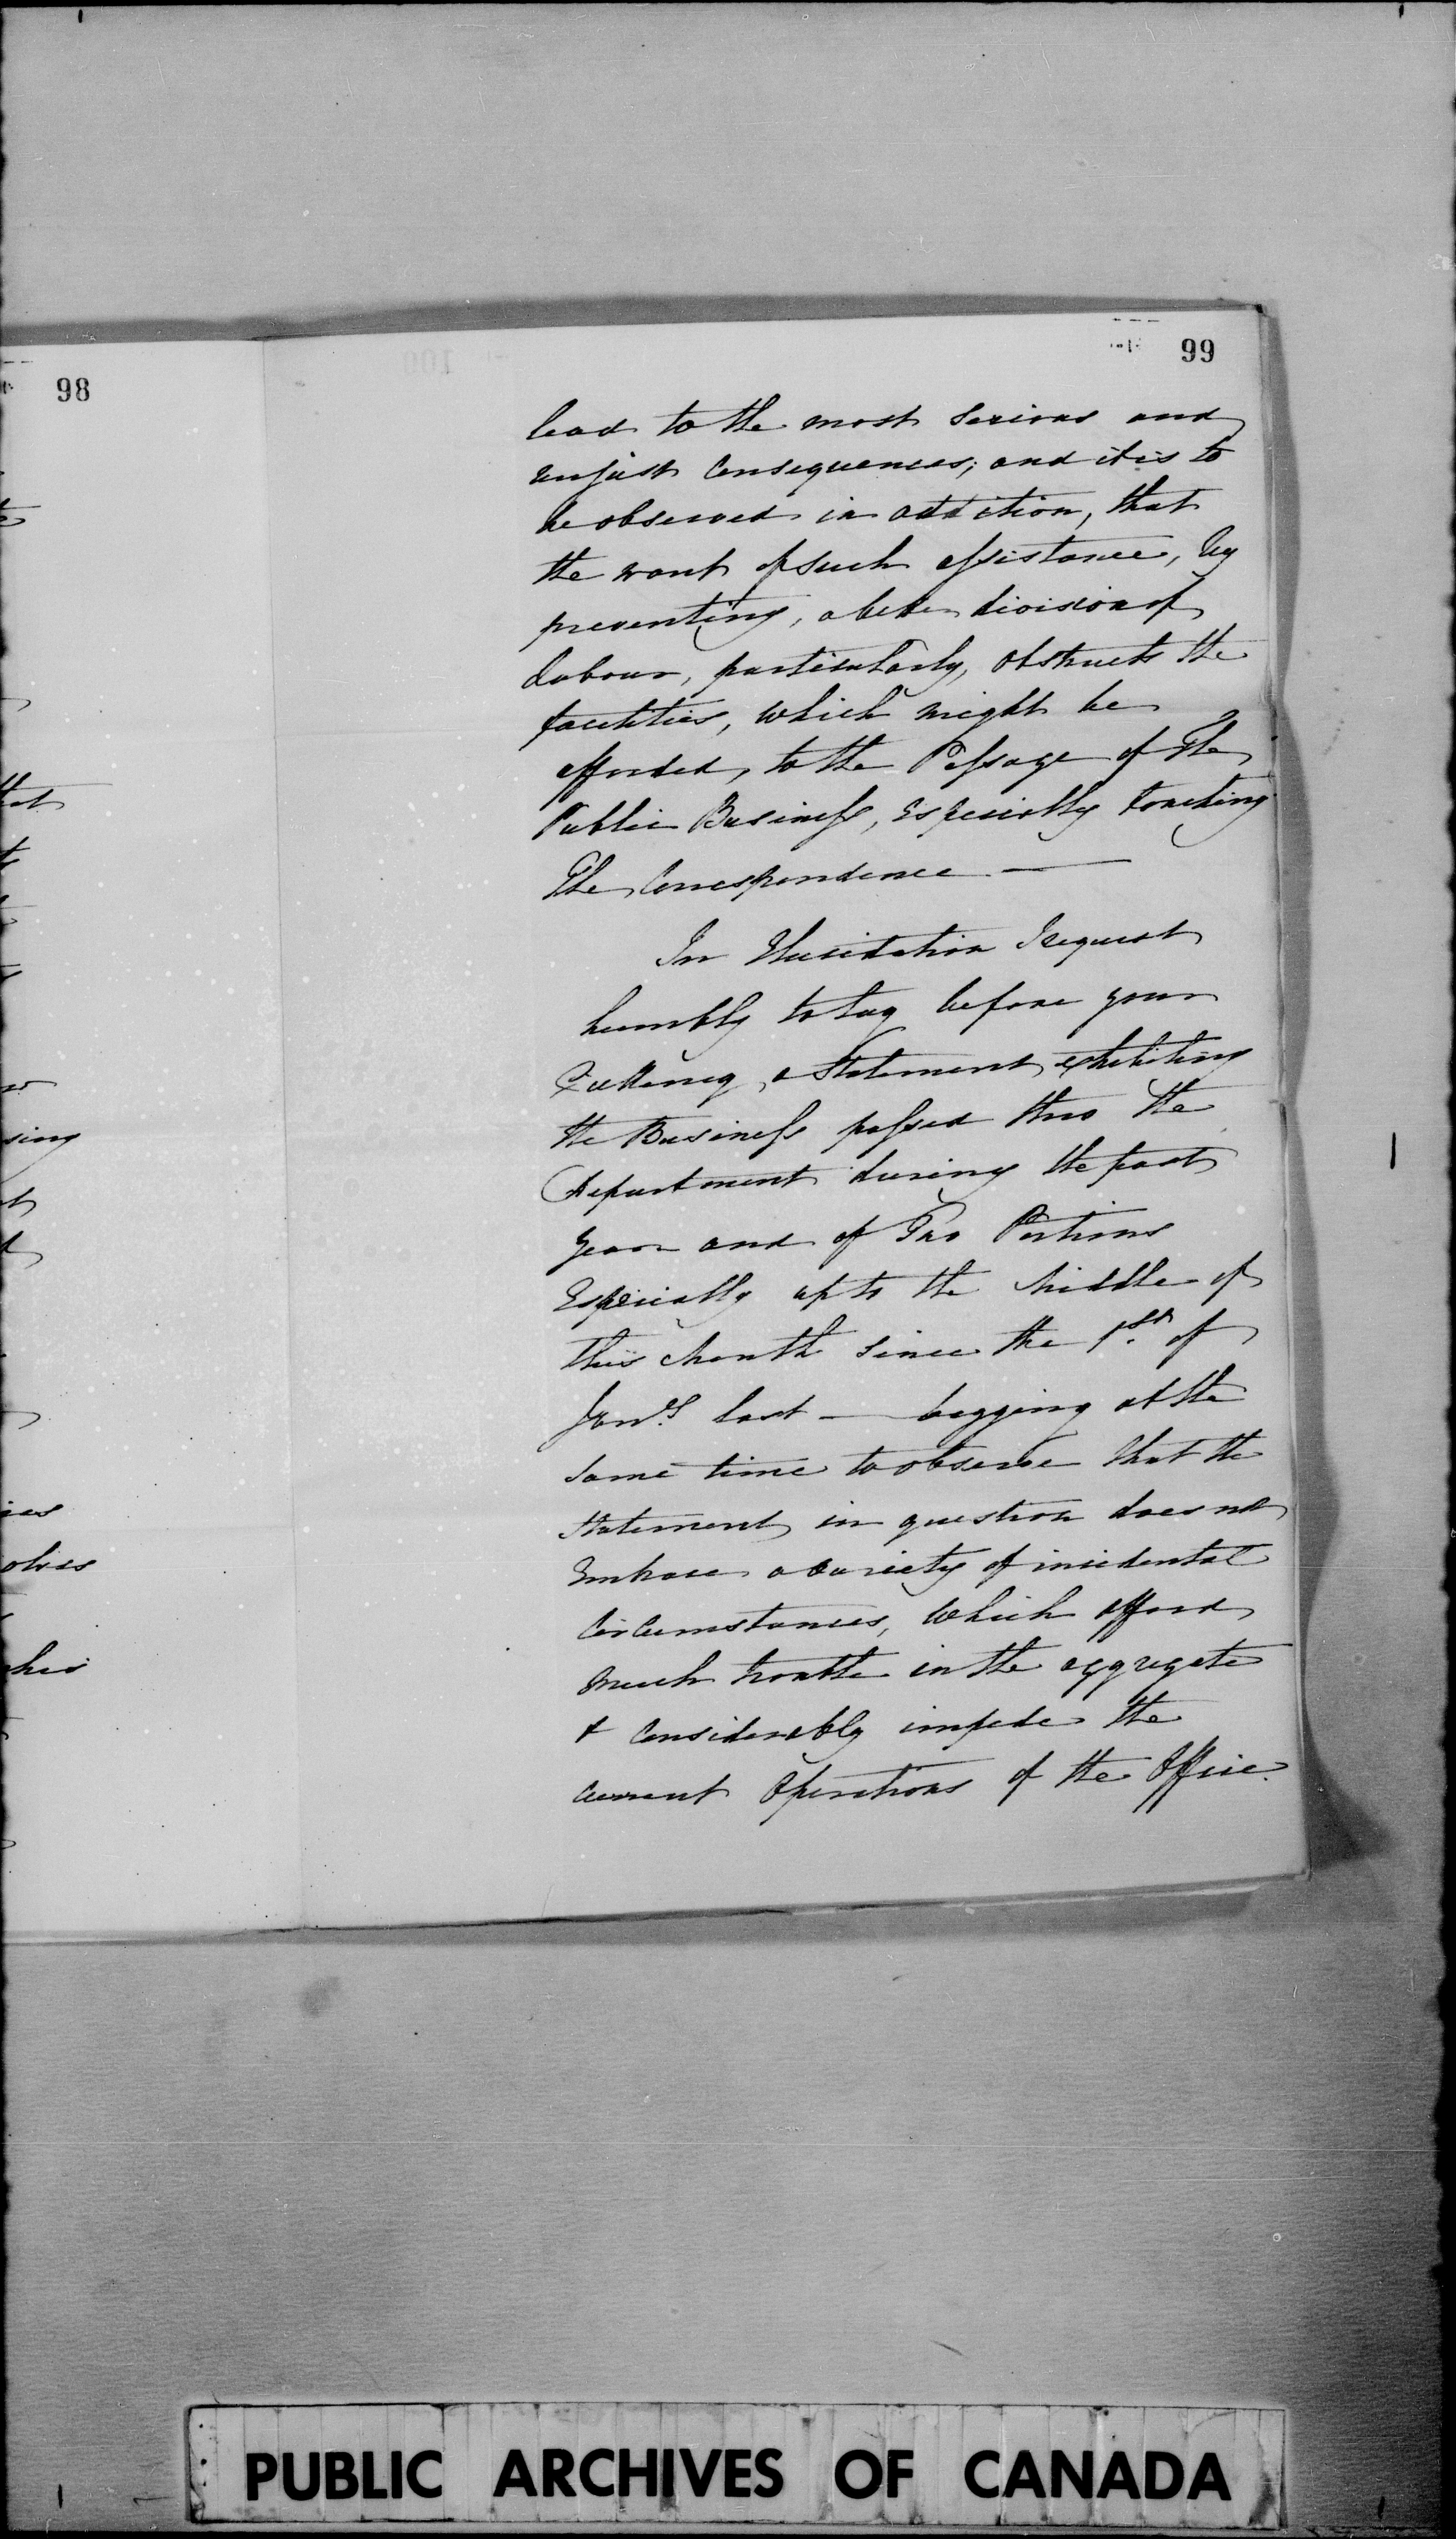 98
99
lead to the most serious and
unjust Consequences; and it is to
be observed in addition, that
the want of such assistance, by
preventing, a better division of
labour, particularly, obstructs the
facilities, which might be
afforded, to the Passage of The
Public Business, Especially touching
The Correspondence —
In Elucidation I request
humbly to lay before your
Excellency, a Statement exhibiting
the Business passed thro the
Department during the past
year and of Two Portions
Especially up to the Middle of
this Month since the 1st. of
Jany. last — begging at the
same time to observe that the
Statement in question does not
Embrace a variety of incidental
Circumstances, which afford
much trouble in the aggregate
& Considerably impede the
Current Operations of the Office.
tot
sing
ies
olves
his
PUBLIC ARCHIVES OF CANADA